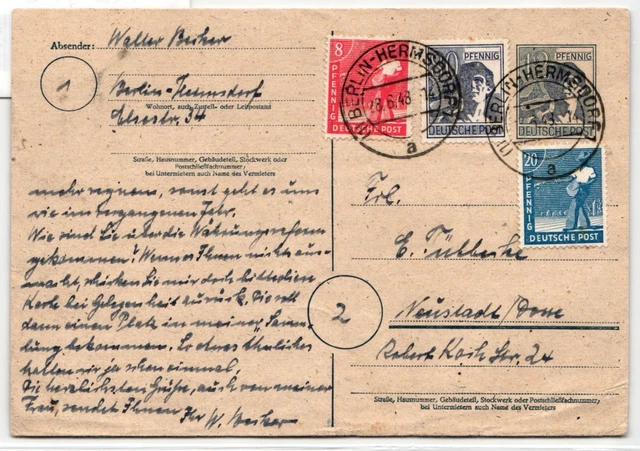 Absender: Walter Becker
1
Berlin-Hermsdorf
Wohnort, auch Zustell- oder Leitpostamt
Elsestr. 34
Straße, Hausnummer, Gebäudeteil, Stockwerk oder
Postschließfachnummer,
bei Untermietern auch Name des Vermieters
mehr regnen, sonst geht es uns
wie im vergangenen Jahr.
Wie sind Sie über die Währungsreform
gekommen? Wenn es Ihnen nichts aus-
macht, schicken Sie mir doch bitte die
Karte bei Gelegenheit zurück. Sie soll
dann einen Platz in meiner "Samm-
lung" bekommen. So etwas ähnliches
hatten wir ja schon einmal.
Die herzlichsten Grüße, auch von meiner
Frau, sendet Ihnen
Ihr W. Becker
8
PFENNIG
DEUTSCHE POST
PFENNIG
DEUTSCHE POST
PFENNIG
DEUTSCHE POST
20
PFENNIG
DEUTSCHE POST
BERLIN-HERMSDORF
6.48
a
BERLIN-HERMSDORF
a
Frl.
E. Tülbecke
2
Neustadt/Dosse
Robert Koch Str. 24
Straße, Hausnummer, Gebäudeteil, Stockwerk oder Postschließfachnummer,
bei Untermietern auch Name des Vermieters